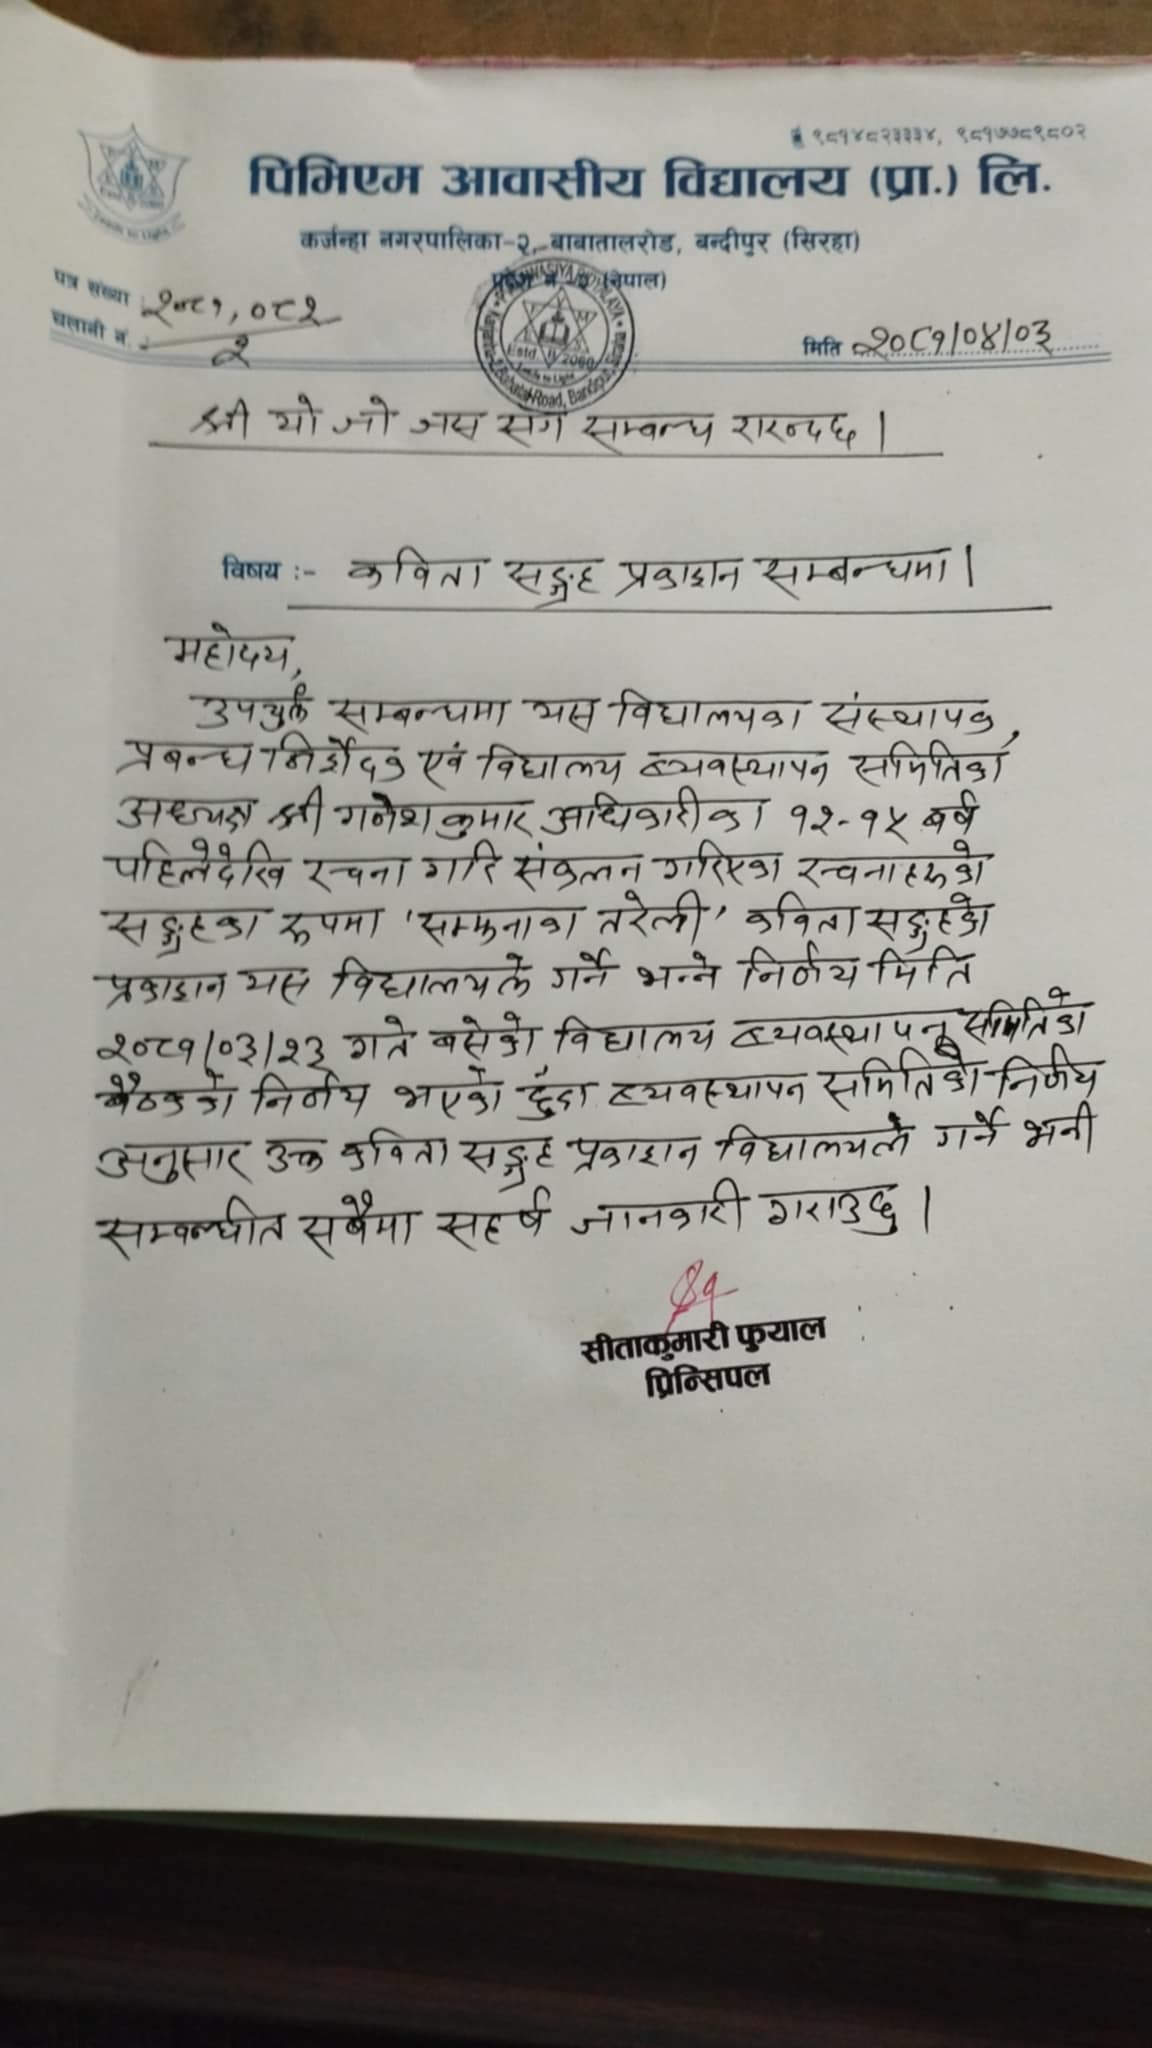 ९८१४८२३३३४, ९८१७७८९८०२
पिभिएम आवासीय विद्यालय (प्रा.) लि.
कर्जन्हा नगरपालिका-२, बाबातालरोड, बन्दीपुर (सिरहा)
(नेपाल)
पत्र संख्या : २०८१,०८२
चलानी नं. : २
मिति २०८१/०४/०३
Estd. 2060
Road, Bandipur
श्री यो जो जस संग सम्बन्ध राख्दछ ।
विषय :- कविता सङ्ग्रह प्रकाशन सम्बन्धमा ।
महोदय,
उपर्युक्त सम्बन्धमा यस विद्यालयका संस्थापक,
प्रबन्ध निर्देशक एवं विद्यालय व्यवस्थापन समितिका
अध्यक्ष श्री गणेशकुमार अधिकारीका १२-१५ बर्ष
पहिलेदेखि रचना गरि संकलन गरिएका रचनाहरूको
सङ्ग्रहका रूपमा 'सम्झनाका तरेली' कविता सङ्ग्रहको
प्रकाशन यस विद्यालयले गर्ने भन्ने निर्णय मिति
२०८१/०३/२३ गते बसेको विद्यालय व्यवस्थापन समितिको
बैठकको निर्णय भएको हुँदा व्यवस्थापन समितिको निर्णय
अनुसार उक्त कविता सङ्ग्रह प्रकाशन विद्यालयले गर्ने भनी
सम्बन्धीत सबैमा सहर्ष जानकारी गराउछु ।
सीताकुमारी फुयाल
प्रिन्सिपल